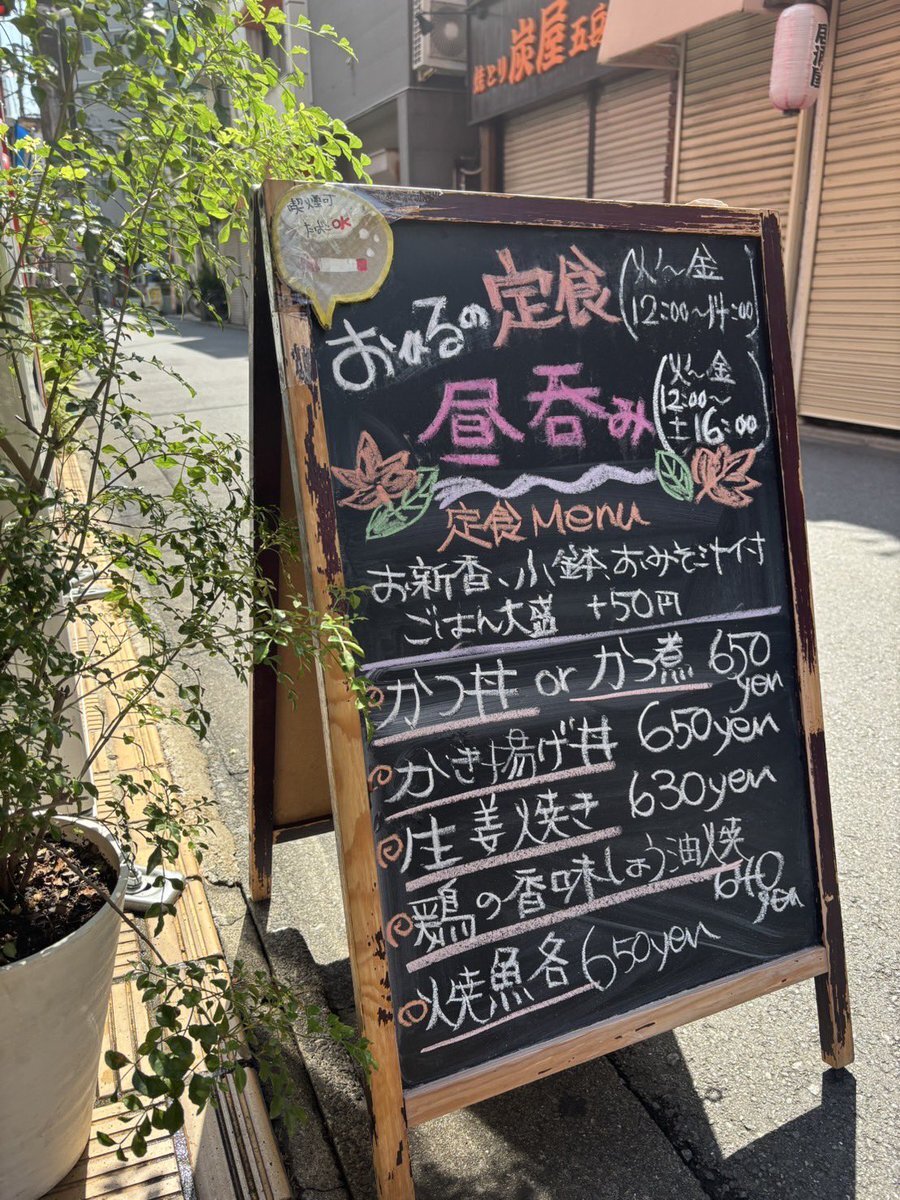 焼とり 炭屋五
居酒屋
喫煙可
OK
おひるの定食 (火～金 12:00～14:00)
昼呑み (火～金 12:00～ 土 16:00)
定食Menu
お新香、小鉢、おみそ汁付
ごはん大盛 +50円
かつ丼 or かつ煮 650yen
かき揚げ丼 650yen
生姜焼き 630yen
鶏の香味しょう油焼 640yen
焼魚各650yen